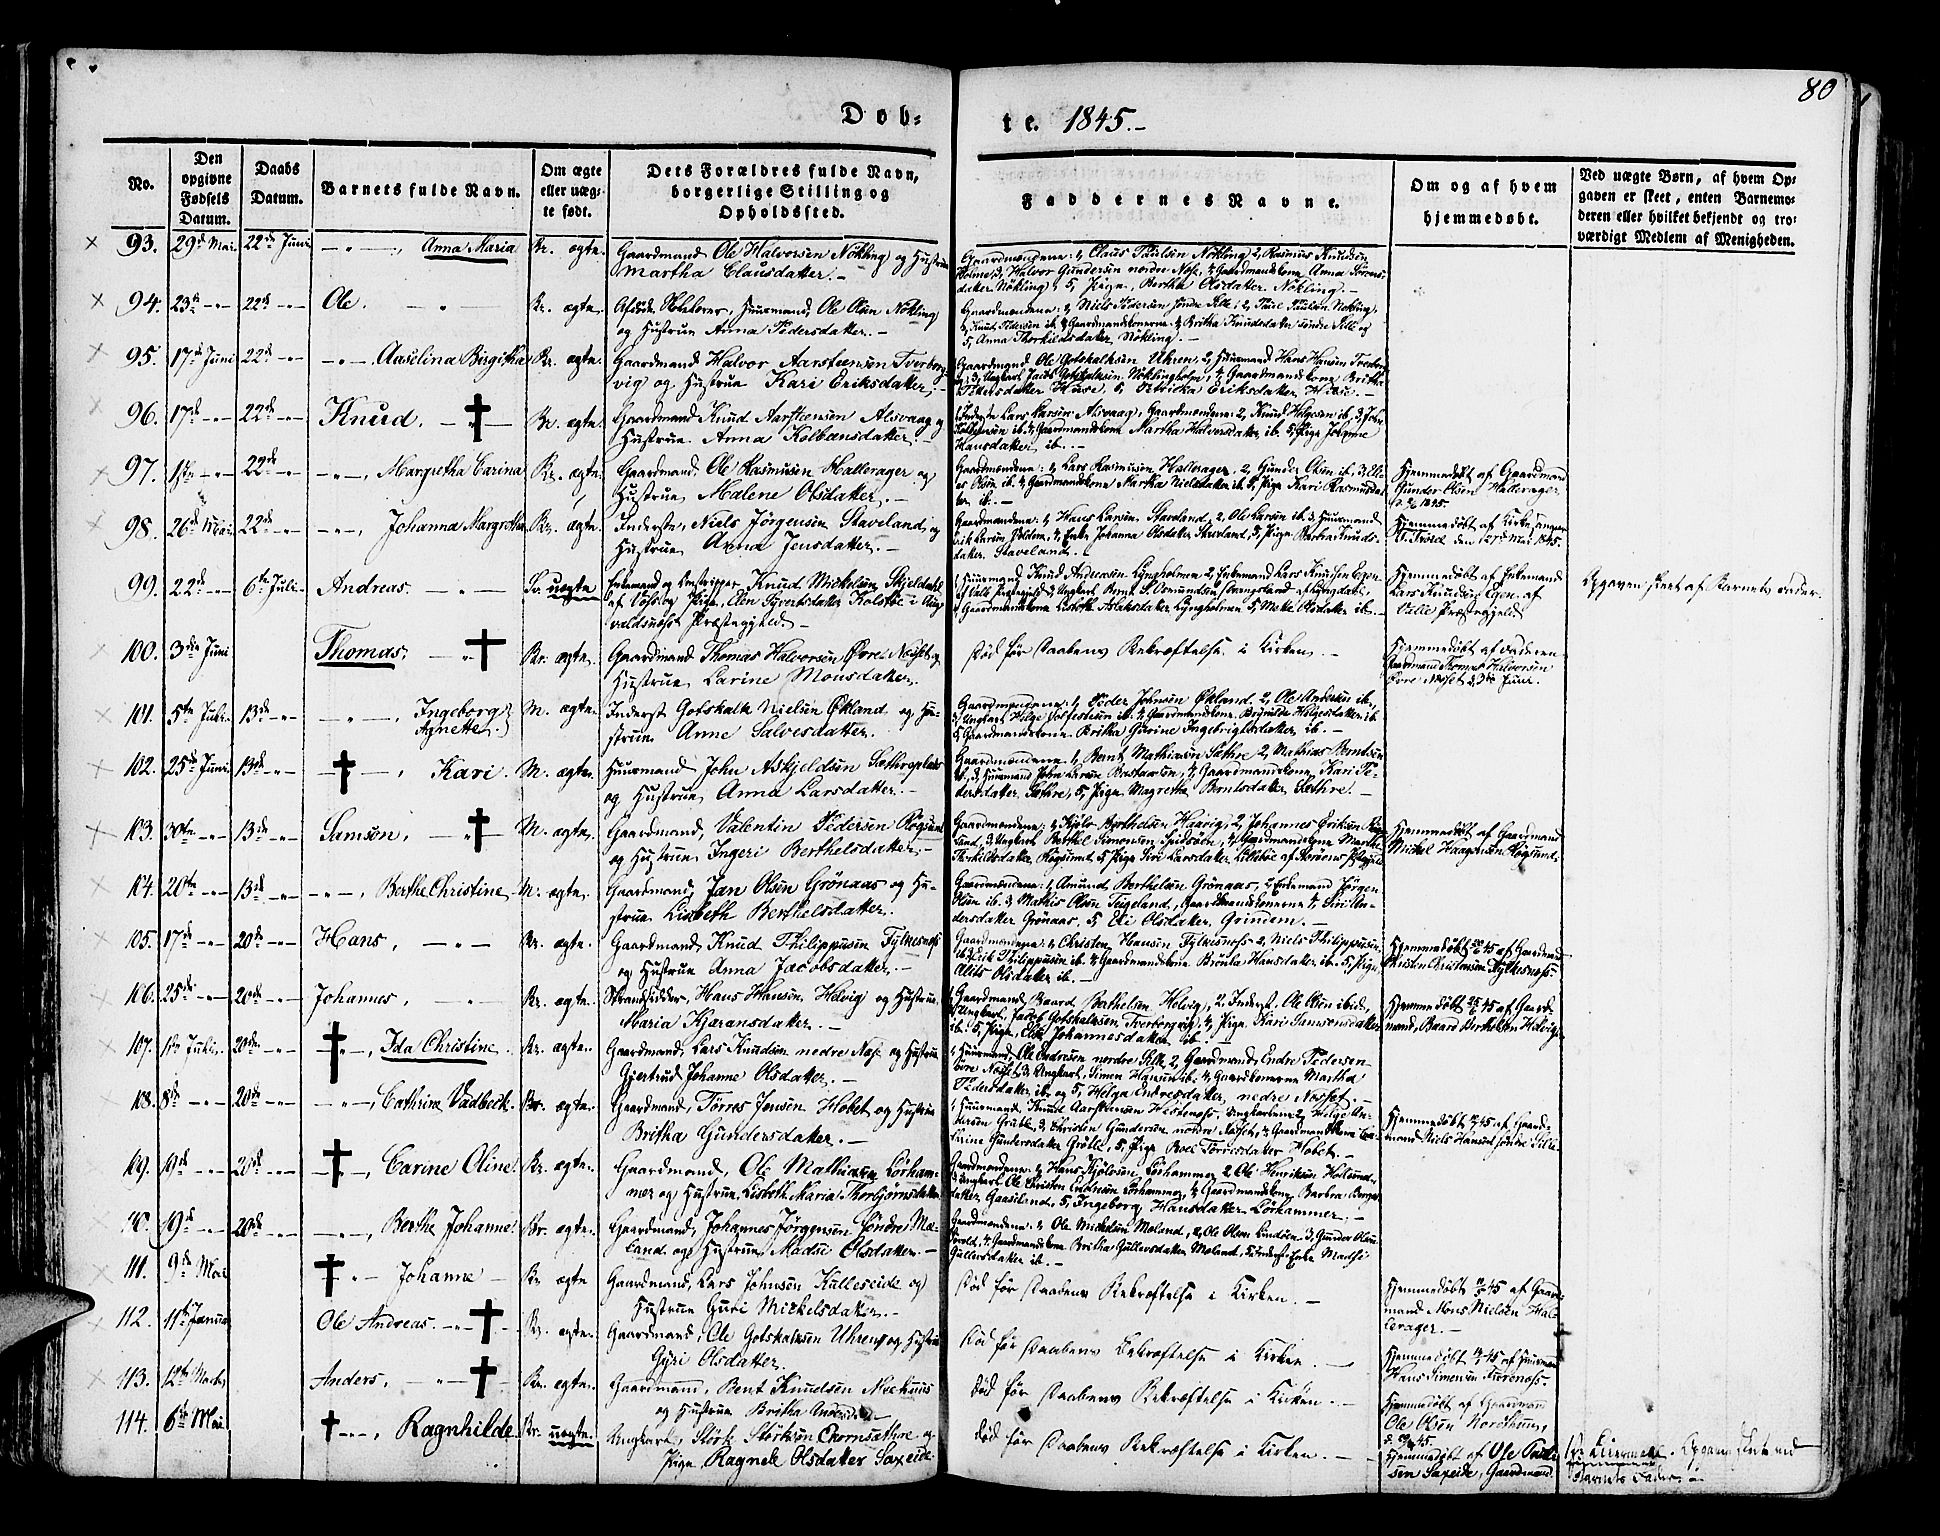 80
Døb-
te. 1845.-
No.
Den
opgivne
Fødsels
Datum.
Daabs
Datum.
Barnets fulde Navn.
Om ægte
eller uæg-
te født.
Dets Forældres fulde Navn,
borgerlige Stilling og
Opholdssted.
Faddernes Navne.
Om og af hvem
hjemmedøbt.
Ved uægte Børn, af hvem Op-
gaven er skeet, enten Barnemo-
deren eller hvilket bekjendt og tro-
værdigt Medlem af Menigheden.
93. 29de Mai. 22de Juni Anna Maria Kr. ægte. Gaardmand Ole Halvorsen Nökling og Hustrue
Martha Clausdatter.-
Gaardmændene: 1, Claus Paulsen Nökling 2, Rasmus Knudsen
Holme, 3, Halvor Gundersen nordre Nose, 4, Gaardmandskone Anna Sörens-
datter Nökling, 5, Pige, Bertha Olsdatter Nökling.-
94. 23de 22de Ole. Kr. ægte. Huusmand, Ole Olsen Nökling
og Hustrue Anna Pedersdatter.-
Gaardmændene: 1, Niels Pedersen Söndre 2, Poul Paulsen Nökling,
3, Knud Pedersen ib. 4, Gaardmandskonerne Britha Knudsdatter Söndre og
5, Anna Thorkildsdatter, Nökling.-
95. 17de Juni 22de Aaselina Birgitha Kr. ægte. Gaardmand Halvor Aarstensen Tverborg-
vig og Hustrue Kari Eriksdatter,-
Gaardmand Ole Gotskalksen Uhren, 2, Huusmand Hans Hansen Tverborg-
vig, 3, Ungkarl Jacob Gotskalksen Nöklingholm, 4, Gaardmandskone Britha
96. 17de 22de Knud. Kr. ægte. Gaardmand Knud Aarstensen Alsvaag og
Hustrue Anna Kolbensdatter.-
Inderste Lars Larsen Alsvaag, Gaardmændene: 2, Knud Helgesen ib. 3, John
ib. 4, Gaardmandskone Martha Halvorsdatter, ib. 5, Pige Jörgine
Hansdatter ib.-
97. 22de Margretha Carina Kr. ægte. Gaardmand Ole Rasmusen Hallerager og
Hustrue, Malene Olsdatter.-
Gaardmændene: 1, Lars Rasmusen Hallerager, 2, Gunder Olsen ib. 3, Ele-
as Olsen ib. 4, Gaardmandskone Martha Nielsdatter ib. 5, Pige Kari Rasmusdat-
ter ib.-
Hjemmedøbt af Gaardmand
Gunder Olsen Hallerager
98. 26de Mai 22de Johanna Margretha Kr. ægte. Inderste, Niels Jörgensen Staveland, og
Hustrue Anna Jensdatter.-
Gaardmændene: 1, Hans Larsen Staveland, 2, Ole Larsen ib. 3, Huusmand
Erik Larsen, 4, Enke Johanna Olsdatter Staveland, 5, Pige Bertha Knuds-
datter. Staveland.-
Hjemmedøbt af Kirkesanger
den 27de Mai 1845.
99. 22de 6te Juli Andreas. Sv. uægte Enkemand og Knud Mickelsen Skjeldahl
af Voss og Pige, Elen Syvertsdatter Kolstöe i Aug-
valdsnæss Præstegjeld.-
Huusmand Knud Andreasen Lyngholmen 2, Enkemand Lars Knudsen Egen
4, Gaardmandskone Lisbeth Aslaksdatter Lyngholmen 5, Mette Olsdatter ib.-
Hjemmedøbt af Enkemand
Lars Knudsen Egen af
Valle Præstegjeld
Opgaven skeet af Barnets Fader.
100. 3die Juni Thomas. Kr. ægte. Gaardmand Thomas Halvorsen Övre Nöset og
Hustrue Larine Monsdatter.
Död før Daabens Bekræftelse i Kirken.-
Hjemmedøbt af Faderen
Gaardmand Thomas Halvorsen
Övre Nöset d. 3die Juni.
101. 5te Juli 13de Ingeborg
Agnette. M. ægte. Inderst Gotskalk Nielsen Økland og Hu-
strue Anne Salvesdatter.
Gaardmændene: 1, Peder Johnsen Økland, 2, Ole Andersen ib.
3, Ungkarl Helge Tostensen ib. 4, Gaardmandskone Helgesdatter ib.
5, Gaardmandskone Britha Gurine Ingebrigtsdatter ib.-
102. 25de Juni. 13de Kari. M. ægte. Huusmand John Askjeldsen Sæthreplads
og Hustrue, Anna Larsdatter.-
Gaardmændene 1, Bernt Mathiasen Sæthre 2, Mathias Berntsen
ib. 3, Huusmand John Larsen, 4, Gaardmandskone Kari Pe-
dersdatter Sæthre, 5, Pige Magretha Berntsdatter, Sæthre.-
103. 30te 13de Samson, M. ægte. Gaardmand, Valentin Pedersen Røgsund
og Hustrue Ingeri Berthelsdatter,-
Gaardmændene: 1, Kjölv Berthelsen Haavig, 2, Johannes Eriksen Røg-
sund, 3, Ungkarl Berthel Simonsen, 4, Gaardmandskone Marthe
Thorkildsdatter, Røgsund, 5, Pige Siri Larsdatter
Hjemmedøbt af Gaardmand
Michel Haagensen Røgsund.
104. 20te 13de Berthe Christine M. ægte. Gaardmand, Jan Olsen Grönaas og Hu-
strue Lisbeth Berthelsdatter.
Gaardmændene: 1, Amund Berthelsen Grönaas, 2, Enkemand Jörgen
Olsen ib. 3, Mathis Olsen Tugeland, Gaardmandskonerne 4, Siri An-
dersdatter Grönaas, 5, Eli Olsdatter, Grindem.-
105. 17de 20de Hans, Kr. ægte. Gaardmand, Knud Philippusen Fylkesnæs
og Hustrue Anna Jacobsdatter.-
Gaardmændene: 1, Christen Hansen Fylkesnæss 2, Niels Philippusen
ib. 3, Erik Philippusen ib. 4, Gaardmandskone Brönla Hansdatter ib. 5, Pige
Alits Olsdatter ib.-
Hjemmedøbt af Gaardmand
Christen Christensen Fylkesnæss
106. 25de 20de Johannes, Kr. ægte. Strandsidder, Hans Hansen Helvig og Hustrue,
Maria Kjæransdatter.-
1, Gaardmand, Baard Berthelsen, Helvig, 2, Inderst, Ole Olsen ibid.
3, Ungkarl, Jacob Gotskalksen, Tverborgvig, 4, Pige, Kari Samsonsdatter
ib. 5, Pige, Else Johannesdatter ib.-
Hjemmedøbt af Gaard-
mand, Baard Berthelsen Helvig
107. 1ste Juli 20de Ida Christine. Kr. ægte. Gaardmand, Lars Knudsen nedre Nöse og Hustrue
Gjertrud Johanne Olsdatter.-
1, Huusmand, Ole Endresen nordre 2, Gaardmand Endre Pedersen
övre Nöset 3, Ungkarl, Simon Hansen ib. 4, Gaardkonerne Martha
Pedersdatter ib. og 5, Helga Endresdatter, nedre Nösset.-
108. 8de 20de Cathrine Vadbeck. Kr. ægte. Gaardmand, Törres Jensen Hobet og Hustrue
Britha Gundersdatter.-
1, Huusmand, Knud Aarstensen Hestenæss, Ungkarlene 2, Helge
3, Christen Gundersen nordre Nöset, 4, Gaardmandskone
Gundersdatter Grütle, 5, Pige, Boel Törresdatter Hobet.-
Hjemmedøbt af Gaard-
mand Niels Hansen Söndre
109. 19de 20de Carine Oline. Kr. ægte. Gaardmand, Ole Mathiasen Lörham-
mer og Hustrue, Lisbeth Maria Thorbjörnsdatter
Gaardmændene: 1, Hans Kjölvsen Lörhammer 2, Ole Henriksen
3, Ungkarl Ole Christen Endresen Lörhammer, 4, Gaardmandskone Barbra
datter, Gaaseland, 5, Ingeborg Hansdatter Lörhammer.-
110. 19de 20de Berthe Johanne. Kr. ægte. Gaardmand, Johannes Jörgensen Söndre Mæ-
land og Hustrue Madsi Olsdatter.-
Gaardmændene: 1, Ole Mickelsen Meland, 2, Ole Olsen Lindöen 3, Gunder Olsen
4, Gaardmandskone Britha Gullersdatter Meland, Enke Madsi
Gullersdatter ib.-
111. 9de Mai Johanne Kr. ægte Gaardmand, Lars Johnsen Kulleseide og
Hustrue Guri Mickelsdatter.-
Död før Daabens Bekræftelse i Kirken.-
Hjemmedøbt af Gaard-
mand Mons Nielsen Hal-
lerager.-
112. 11te Januar Ole Andreas. Kr. ægte. Gaardmand, Ole Gotskalksen Uhren og Hustrue
Gyri Olsdatter.
Död før Daabens Bekræftelse i Kirken.-
Hjemmedøbt af Huusmand
Hans Simonsen
113. 12te Marts Anders, Kr. ægte. Gaardmand, Bent Knudsen Mækuus
og Hustrue Britha
Död før Daabens Bekræftelse i Kirken.-
Hjemmedøbt af Gaardmand
Ole Olsen Nordtun,
114. 6te Mai Ragnhilde Kr. uægte. Ungkarl, Störk Störksen Ekornsæthre og
Pige Ragnele Olsdatter Saxeide.
Död før Daabens Bekræftelse i Kirken.-
Hjemmedøbt af Ole
sen Saxeide, Gaardmand.
Opgaven skeet ved
Barnets Fader